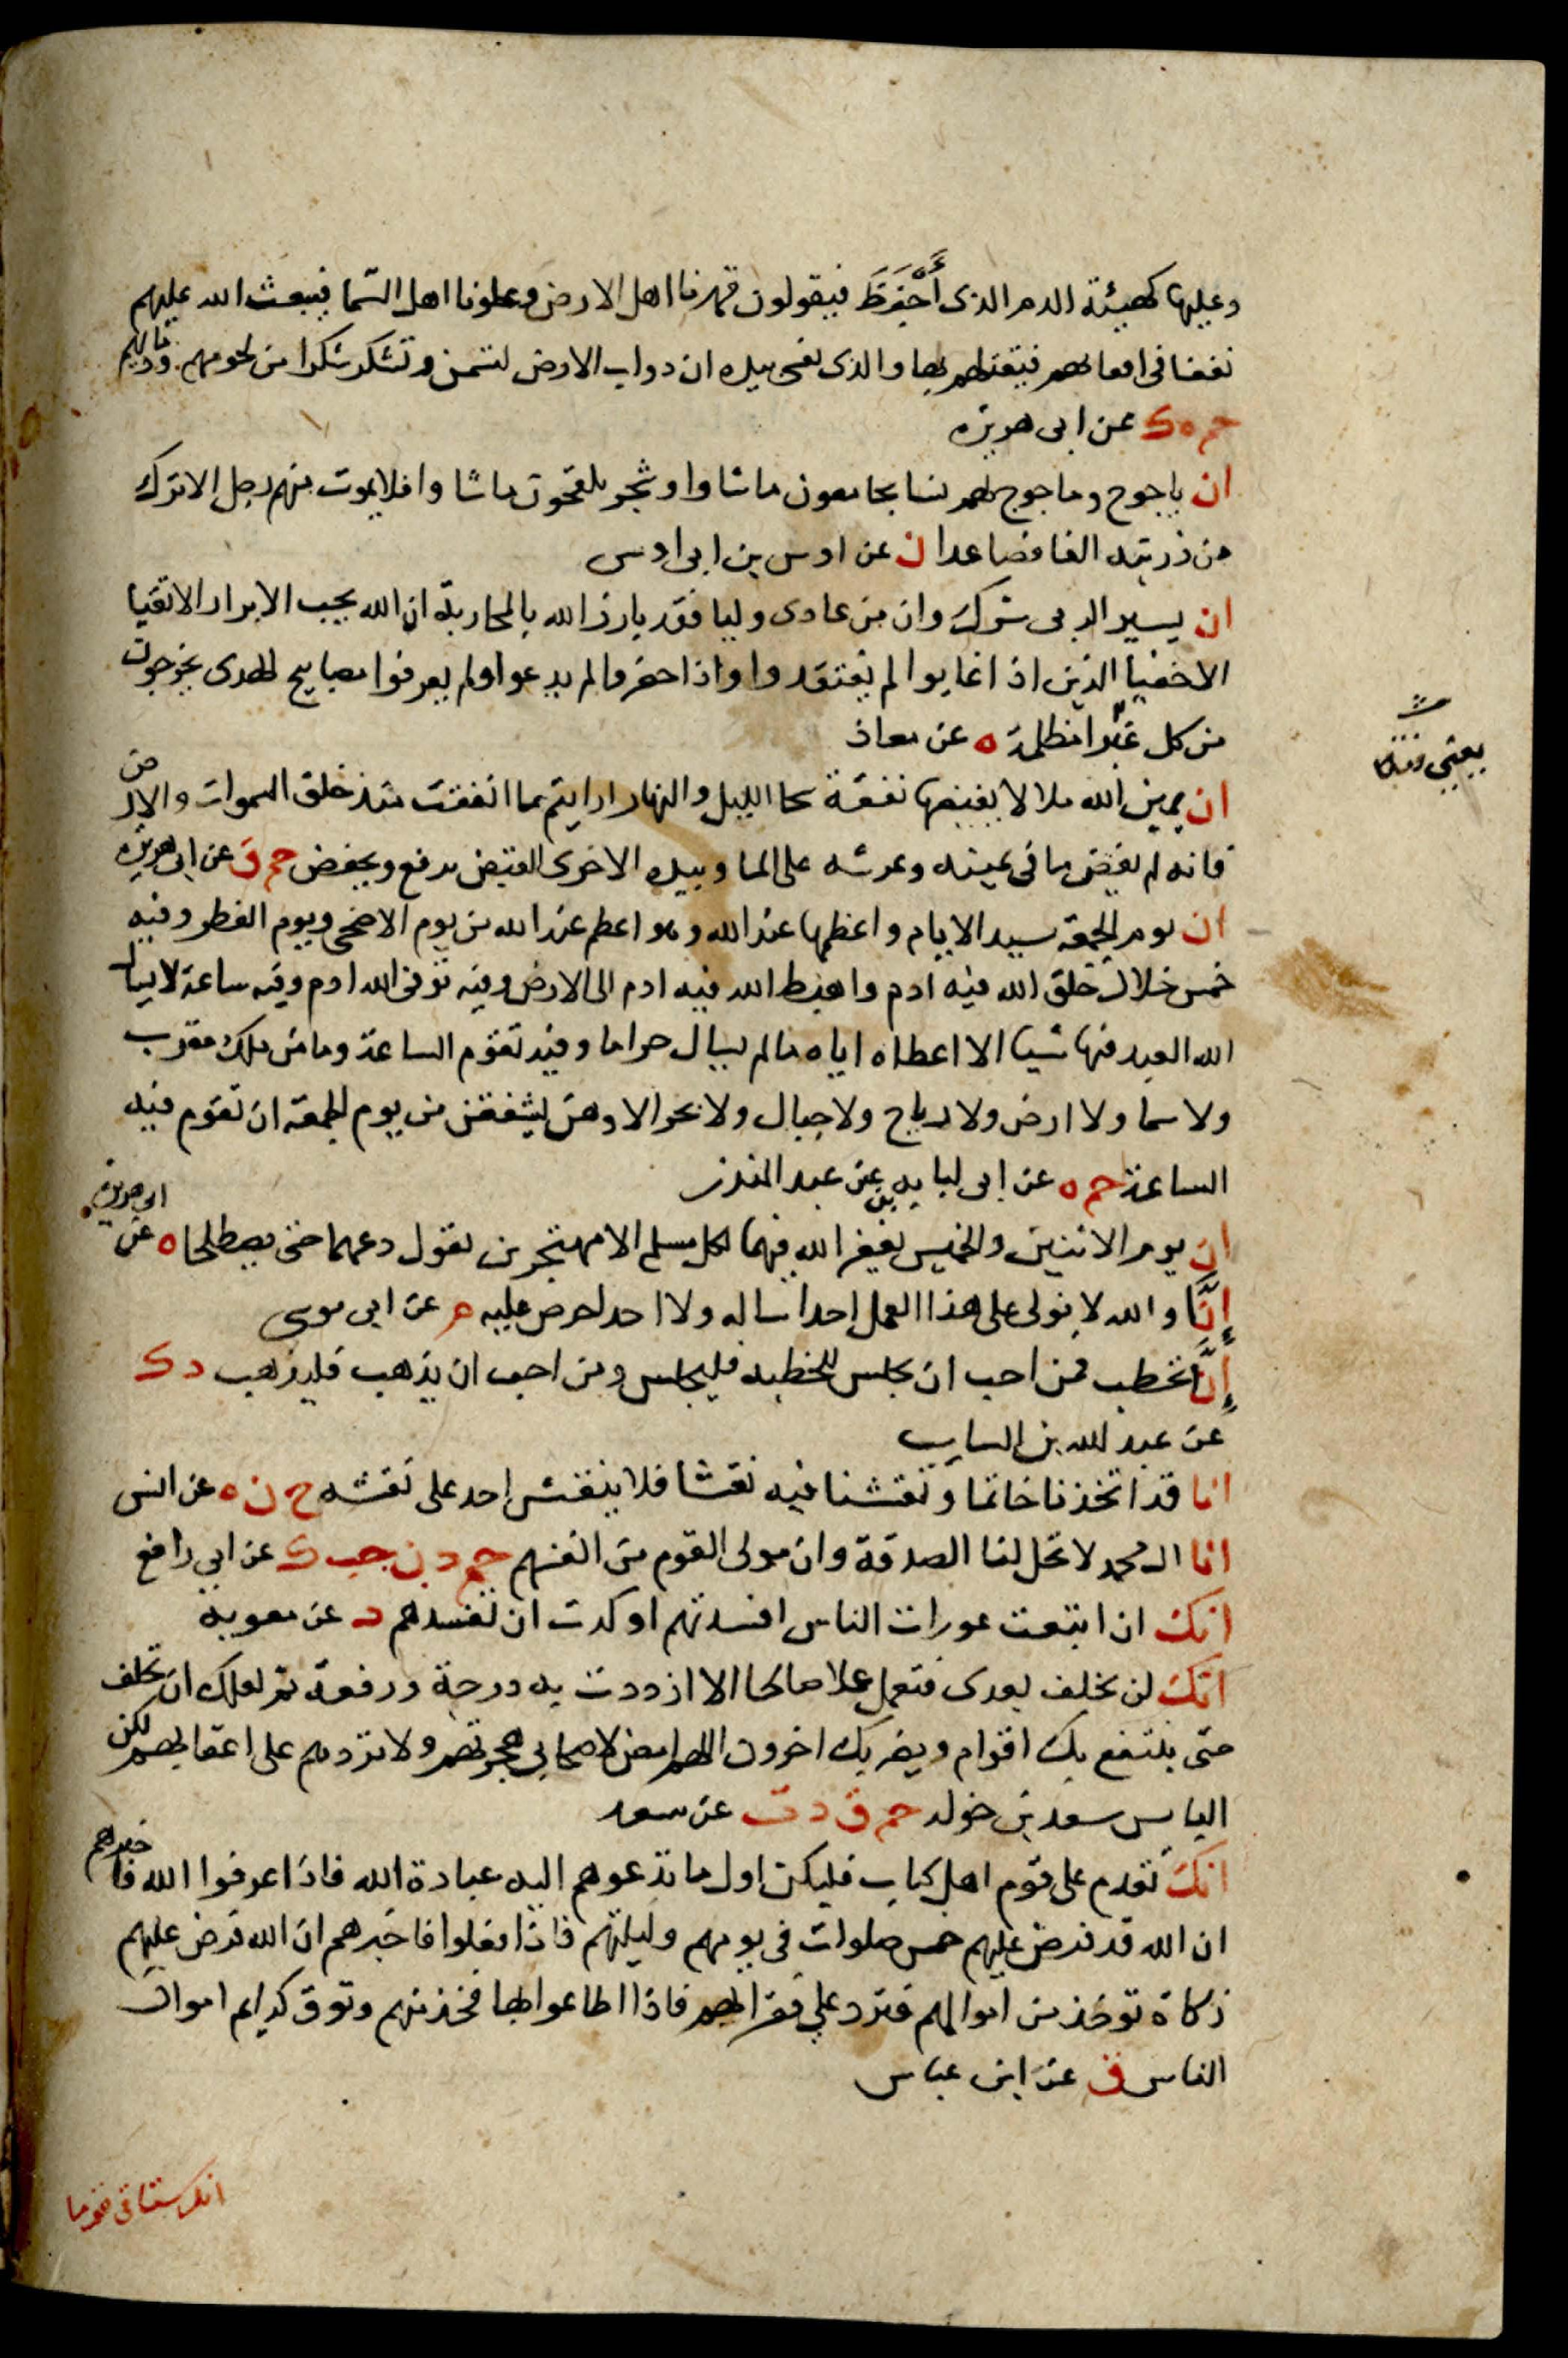 وعليها كهيئة الدم الذى أَحْفَظَ فيقولون قهرنا اهل الارض وعلونا اهل السّما فيبعث الله عليهم
نغفا فى اقفايهم فيقتلهم بها والذى نفسى بيده ان دواب الارض لتسمن وتشكر شكرا من لحومهم ودمايهم
حم ه ك عن ابى هريره
ان ياجوج وماجوج لهم نسا يجامعون ماشاوا وشجر يلقحون ماشا وا فلا يموت منهم رجل الا ترك
من ذريته الفا فصاعدا ن عن اوس بن ابى اوس
ان يسير الريا شرك وان من عادى وليا فقد بارز الله بالمحاربة ان الله يحب الابرار الاتقيا
الاخفيا الذين اذا غابوا لم يفتقدوا واذا حضروا لم يدعوا ولم يعرفوا مصابيح الهدى يخرجون
من كل غبرا مظلمة ه عن معاذ
ان يمين الله ملا لا يغيضها نفقة سحا الليل والنهار ارايتم ما انفقت منذ خلق السموات والارض
فانه لم يغيض ما فى يمينه وعرشه على الما وبيده الاخرى القبض يرفع ويخفض حم ق عن ابى هريره
ان يوم الجمعة سيد الايام واعظمها عند الله وهو اعظم عند الله من يوم الاضحى ويوم الفطر وفيه
خمس خلال خلق الله فيه ادم واهبط الله فيه ادم الى الارض وفيه توفى الله ادم وفيه ساعة لا يسال
الله العبد فيها شيا الا اعطاه اياه مالم يسال حراما وفيه تقوم الساعة وما من ملك مقرب
ولا سما ولا ارض ولا رياح ولا جبال ولا بحر الا وهن يشفقن من يوم الجمعة ان تقوم فيه
الساعة حم ه عن ابى لبابه بن عبد المنذر
ان يوم الاثنين والخميس يغفر الله فيهما لكل مسلم الا مهتجرين يقول دعهما حتى يصطلحا ه عن ابى هريره
إنَّا والله لا نولى على هذا العمل احدا ساله ولا احد لحرص عليه م عن ابى موسى
إنَّا نخطب فمن احب ان يجلس للخطبه فليجلس ومن احب ان يذهب فليذهب د ك
عن عبد الله بن السايب
انا قد اتخذنا خاتما ونقشنا فيه نقشا فلا ينقش احد على نقشه خ ن ه عن انس
انا ال محمد لا تحل لنا الصدقة وان مولى القوم من انفسهم حم د ن حب ك عن ابى رافع
انك ان اتبعت عورات الناس افسدتهم او كدت ان تفسدهم د عن معويه
انك لن تخلف بعدى فتعمل عملا صالحا الا ازددت به درجة ورفعة ثم لعلك ان تخلف
حتى ينتفع بك اقوام ويضر بك اخرون اللهم امض لاصحابى هجرتهم ولا تردهم على اعقابهم لكن
البايس سعد بن خوله حم ق د ت عن سعد
انك تقدم على قوم اهل كتاب فليكن اول ما تدعوهم اليه عبادة الله فاذا عرفوا الله فاخبرهم
ان الله قد فرض عليهم خمس صلوات فى يومهم وليلتهم فاذا فعلوا فاخبرهم ان الله فرض عليهم
زكاة توخذ من اموالهم فترد على فقرايهم فاذا اطاعوا بها فخذ منهم وتوق كرايم اموال
الناس ق عن ابن عباس
انك ستاتى قوما